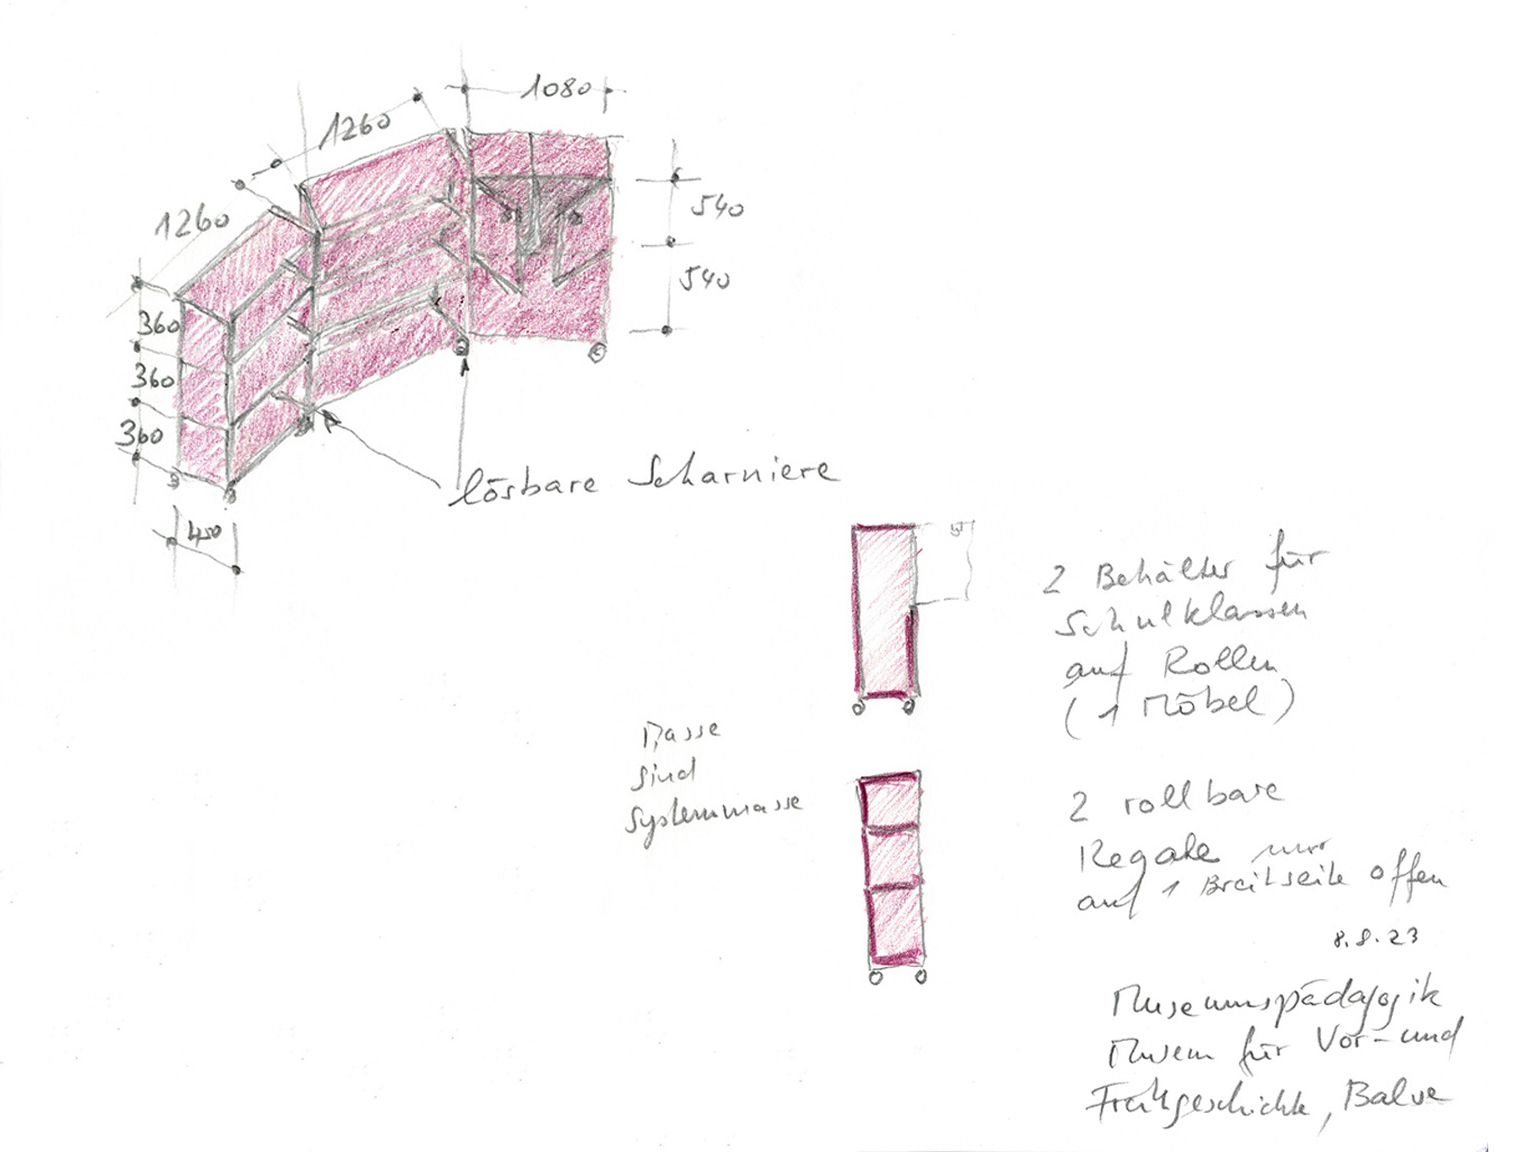 1080
1260
1260
540
540
360
360
360
450
lösbare Scharniere
2 Behälter für
Schulklassen
auf Rollen
(1 Möbel)
Masse
sind
Systemmasse
2 rollbare
Regale nur
auf 1 Breitseite offen
8.8.23
Museumspädagogik
Museum für Vor- und
Frühgeschichte, Balve